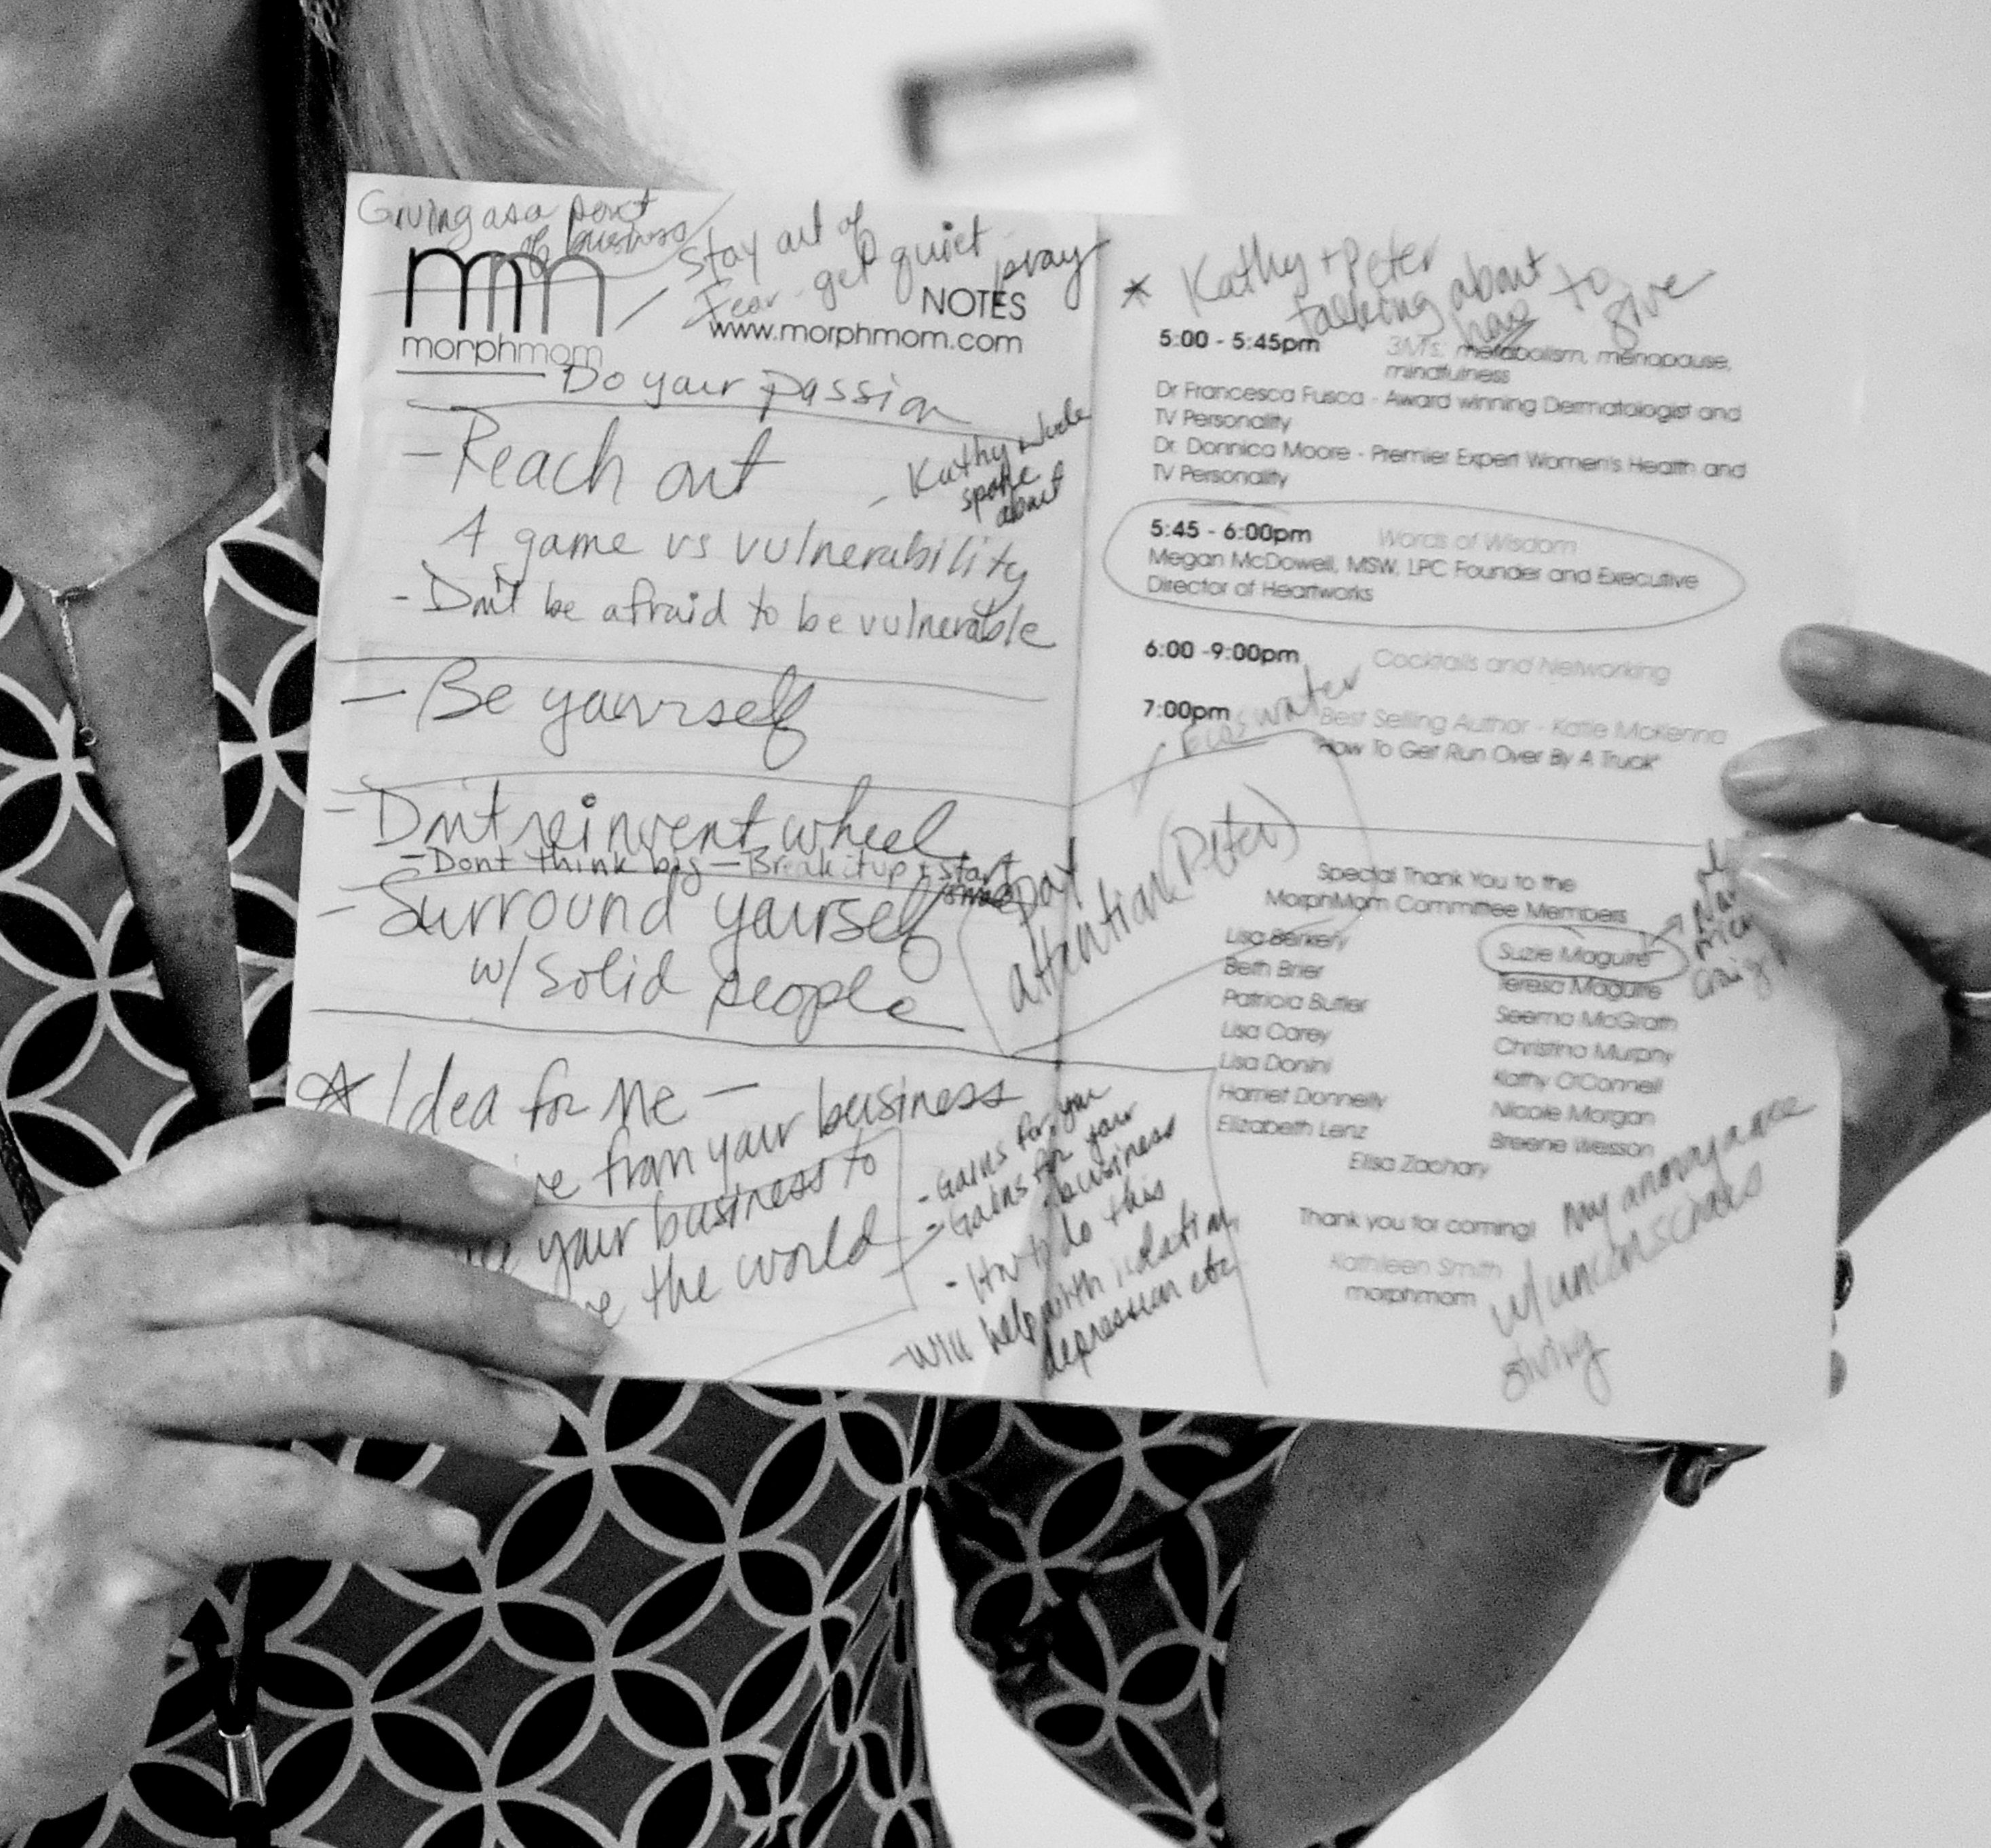 Giving as a part
of business
Stay out of
Fear - get quiet
pray
morphmom
NOTES
www.morphmom.com
Do your passion
- Reach out
- Kathy Wade
spoke
about
A game vs vulnerability
- Don't be afraid to be vulnerable
- Be yourself
- Don't reinvent wheel
- Dont think big - Break it up + start
small
- Surround yourself
w/ solid people
Pay
attention (Peter)
Idea for Me -
from your business
your business to
the world
- Gains for you
- Gains for your
business
- How to do this
- Will help with isolation,
depression etc
* Kathy + Peter
talking about
how to
give
5:00 - 5:45pm 3M's: metabolism, menopause,
mindfulness
Dr Francesca Fusco - Award winning Dermatologist and
TV Personality
Dr. Donnica Moore - Premier Expert Women's Health and
TV Personality
5:45 - 6:00pm Words of Wisdom
Megan McDowell, MSW, LPC Founder and Executive
Director of Heartworks
6:00 -9:00pm Cocktails and Networking
water
7:00pm Best Selling Author - Katie McKenna
"How To Get Run Over By A Truck"
Special Thank You to the
MorphMom Committee Members
Lisa Berkery
Beth Brier
Patricia Butler
Lisa Carey
Lisa Donini
Harriet Donnelly
Elizabeth Lenz
Suzie Maguire
Teresa Maguire
Seema McGrath
Christina Murphy
Kathy O'Connell
Nicole Morgan
Breene Wesson
Elisa Zachary
Craig
Thank you for coming!
Kathleen Smith
morphmom
My
w/ unconscious
giving